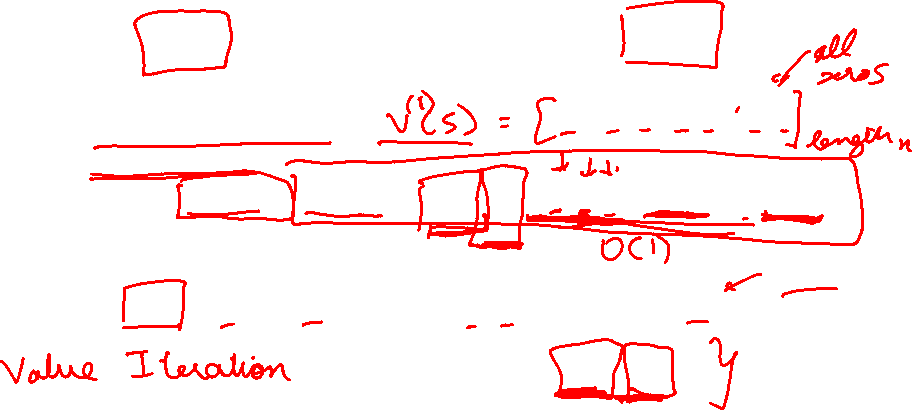 all
zeros
V⁽¹⁾(s) = [ ]
length n
O(1)
Value Iteration
y